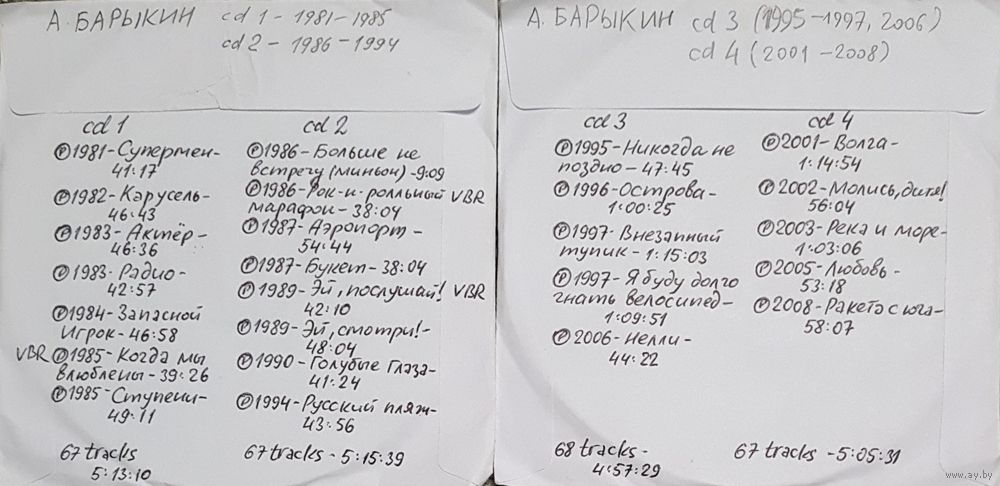 А. БАРЫКИН cd 1 - 1981-1985
cd 2 - 1986-1994
cd 1
Ⓟ1981-Супермен-
41:17
Ⓟ1982-Карусель-
46:43
Ⓟ1983-Актёр-
46:36
Ⓟ1983-Радио-
42:57
Ⓟ1984-Запасной
Игрок-46:58
VBR Ⓟ1985-Когда мы
влюблены-39:26
Ⓟ1985-Ступени-
49:11
67 tracks
5:13:10
cd 2
Ⓟ1986-Больше не
встречу (миньон)-9:09
Ⓟ1986-Рок-н-ролльный VBR
марафон-38:04
Ⓟ1987-Аэропорт-
54:44
Ⓟ1987-Букет-38:04
Ⓟ1989-Эй, послушай! VBR
42:10
Ⓟ1989-Эй, смотри!-
48:04
Ⓟ1990-Голубые глаза-
41:24
Ⓟ1994-Русский пляж-
43:56
67 tracks - 5:15:39
А. БАРЫКИН cd 3 (1995-1997, 2006)
cd 4 (2001-2008)
cd 3
Ⓟ1995-Никогда не
поздно-47:45
Ⓟ1996-Острова-
1:00:25
Ⓟ1997-Внезапный
тупик-1:15:03
Ⓟ1997-Я буду долго
гнать велосипед-
1:09:51
Ⓟ2006-Нелли-
44:22
68 tracks-
4:57:29
cd 4
Ⓟ2001-Волга-
1:14:54
Ⓟ2002-Молись, дитя!
56:04
Ⓟ2003-Река и море-
1:03:06
Ⓟ2005-Любовь-
53:18
Ⓟ2008-Ракета с юга-
58:07
67 tracks -5:05:31
www.ay.by